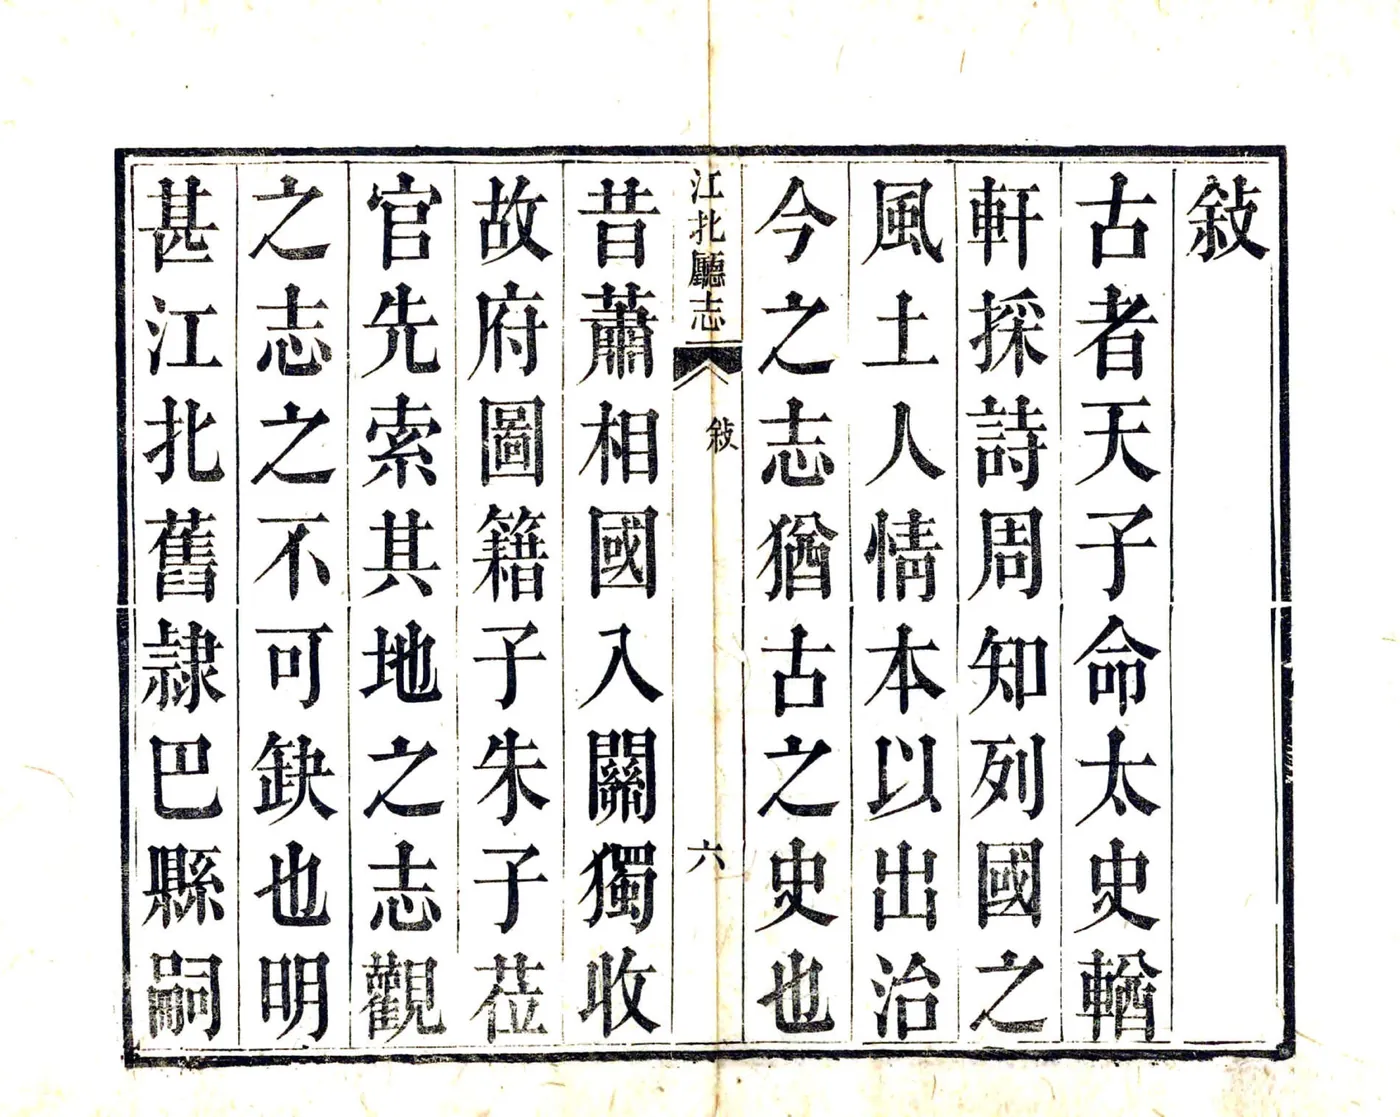 敍
古者天子命太史輶
軒採詩周知列國之
風土人情本以出治
今之志猶古之史也
江北廳志
敍
六
昔蕭相國入關獨收
故府圖籍子朱子莅
官先索其地之志觀
之志之不可缺也明
甚江北舊隷巴縣嗣